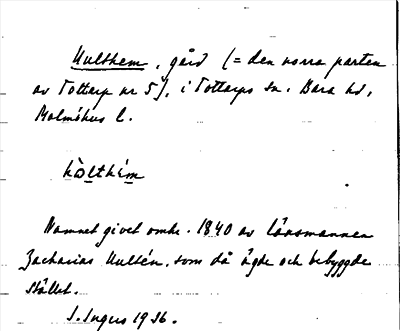 Hulthem, gård (= den norra parten
av Tottarp nr 5), i Tottarps sn. Bara hd,
Malmöhus l.
Namnet givet omkr. 1840 av länsmannen
Zacharias Hultén, som då ägde och bebyggde
stället.
S. Ingers 1936.